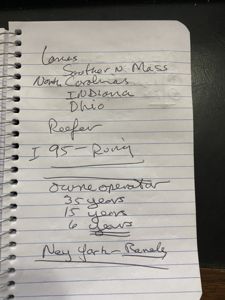 Lanes
Souther N. Mass
North Carolinas
INDIana
Ohio
Reefer
I 95 - Runing
owne operator
35 years
15 years
6 years
Ney York -